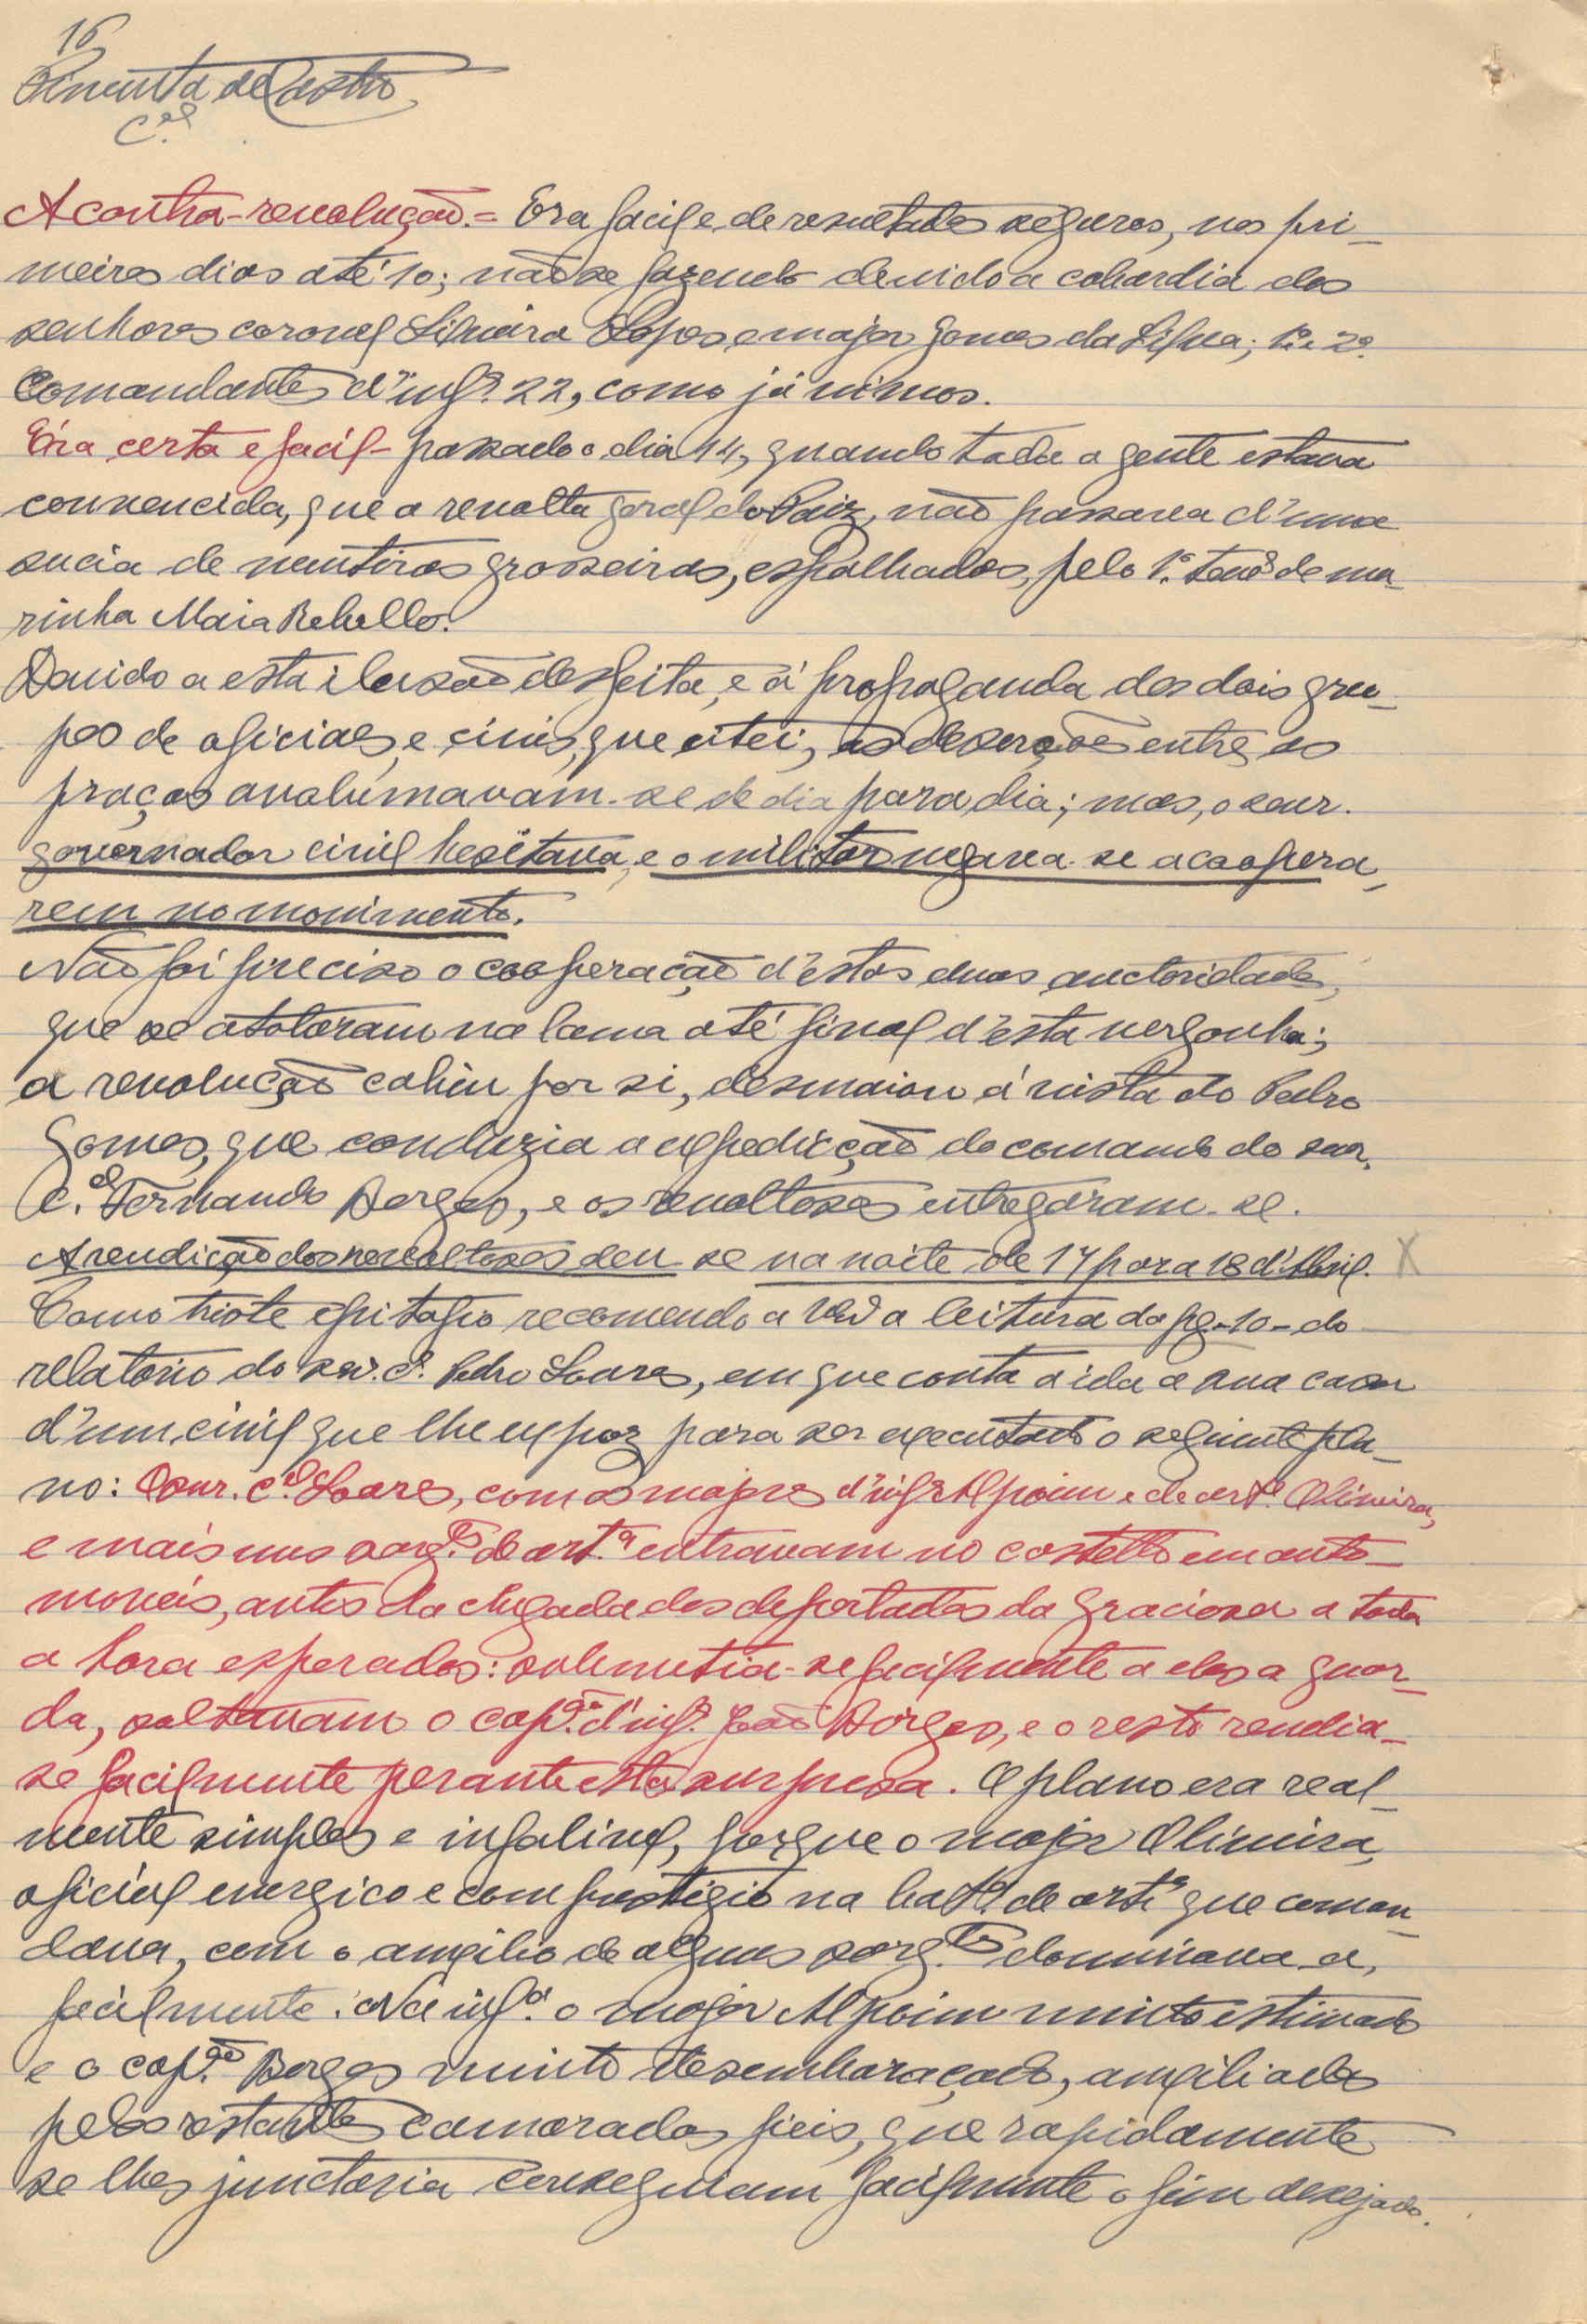 16
Pimenta de Castro
C.el
A contra-revolução.= Era facil e de resultados seguros, nos pri-
meiros dias até 10; não se fazendo devido a cobardia dos
senhores coronel Silveira Lopes e major Gomes da Silva; 1º e 2º
comandantes d'inf.ª 22, como já vimos.
Éra certa e facil- passado o dia 14, quando toda a gente estava
convencida, que a revolta geral do Paiz, não passava d'uma
sucia de mentiras grosseiras, espalhadas, pelo 1.º ten.e de ma-
rinha Maia Rebello.
Devido a esta ilusão desfeita, e á propaganda dos dois gru-
pos de oficiaes, e civis, que citei, as deserções entre as
praças avolumavam-se de dia para dia; mas, o snr.
governador civil hesitava, e o militar negava-se a coopera-
rem no movimento.
Não foi preciso a cooperação d'estas duas auctoridades,
que se atolaram na lama até final d'esta vergonha;
a revolução cahiu por si, desmaiou á vista do Pedro
Gomes, que conduzia a expedicção do comando do snr.
C.el Fernando Borges, e os revoltosos entregaram-se.
A rendição dos revoltosos deu se na noite de 17 para 18 d'Abril. X
Como triste epitafio recomendo a V. a leitura da pg.-10-do
relatorio do snr. C.el Pedro Soares, em que conta a ida a sua casa
d'um civil que lhe expoz para ser executado o seguinte pla-
no: O snr. C.el Soares, com os majores d'inf.ª Alpoim e de art.ª Oliveira,
e mais uns sarg.tos de art.ª entravam no castello em auto-
moveis, antes da chegada dos deportados da Graciosa a toda
a hora esperados: submetia-se facilmente a eles a guar-
da, soltavam o cap.ão d'inf.ª João Borges, e o resto rendia-
se facilmente perante esta surpresa. O plano era real-
mente simples e infalivel, porque o major Oliveira,
oficial energico e com prestigio na bat.ª de art.ª que coman-
dava, com o auxilio de alguns sarg.tos dominava-a,
facilmente. Na inf.ª o major Alpoim muito estimado
e o cap.ão Borges muito desembaraçado, auxiliados
pelos restantes camaradas fieis, que rapidamente
se lhes junctaria conseguiam facilmente o fim desejado.